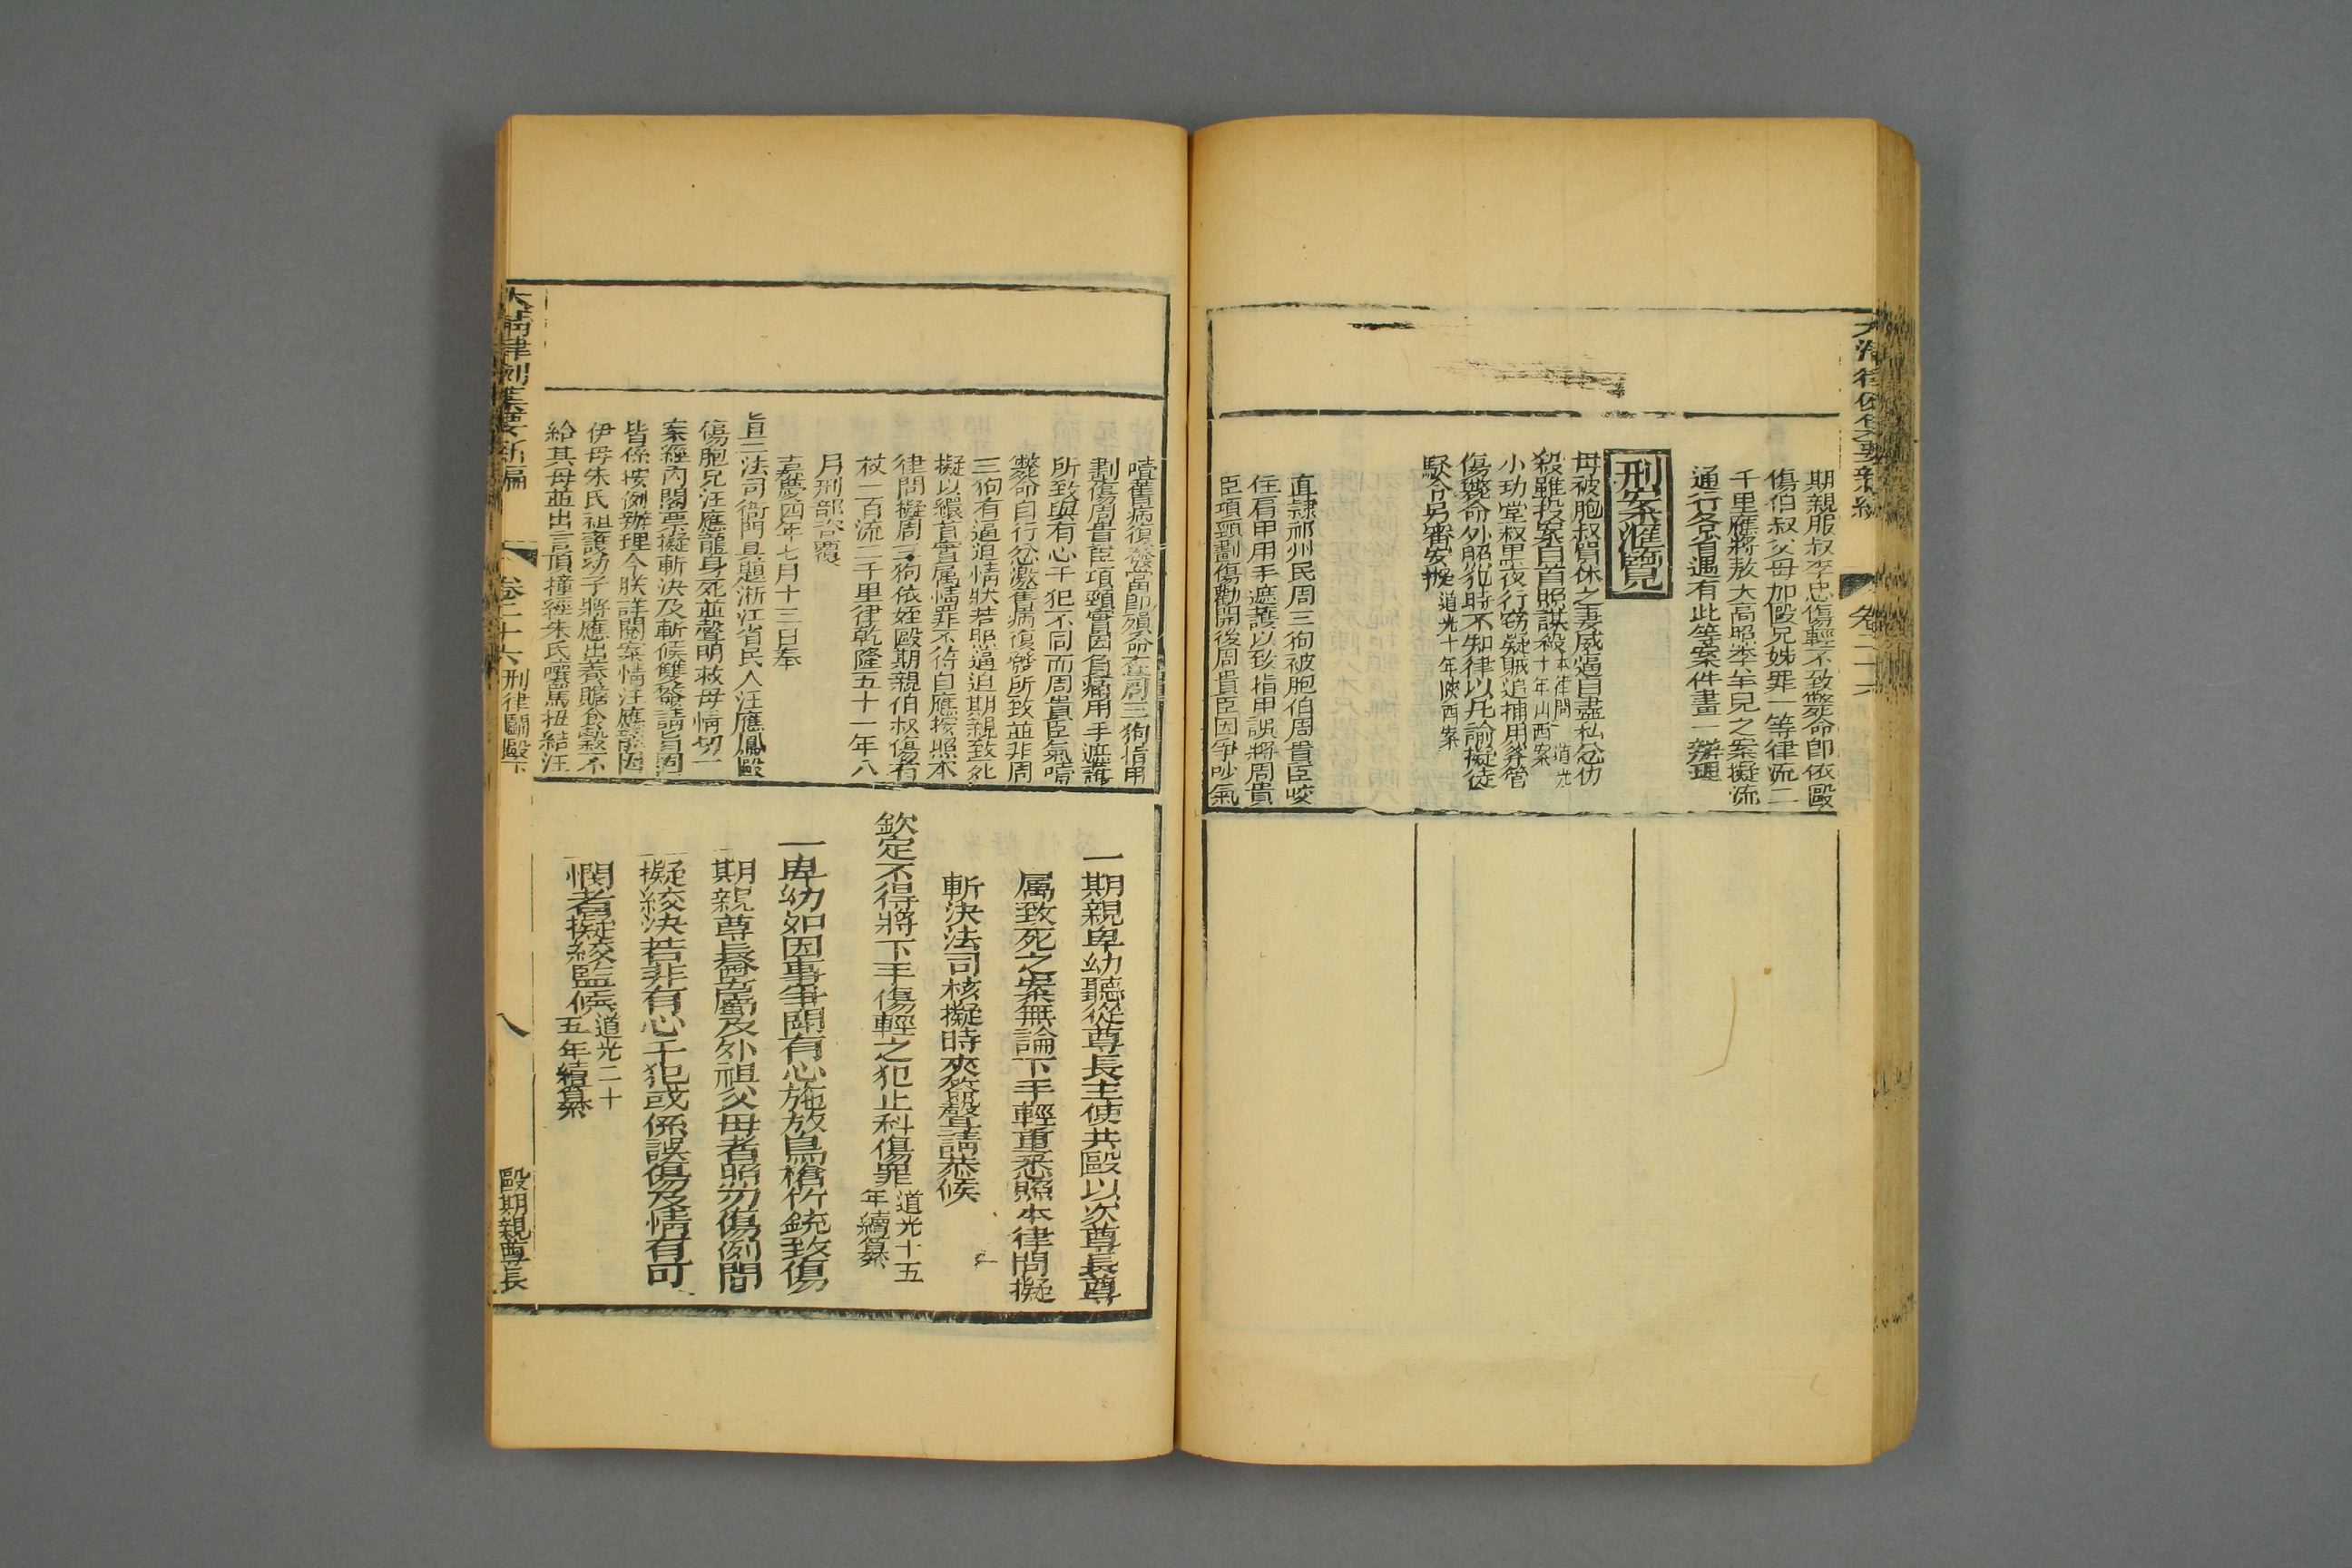 期親服叔李忠傷輕不致斃命即依毆
傷伯叔父母加毆兄姊罪一等律流二
千里應將敖大高照李羊兒之案擬流
通行各省遇有此等案件畫一辦理
刑案滙覽
母被胞叔賀休之妻威逼自盡私忿仂
殺雖投案自首照謀殺本律問道光十年山西案
小功堂叔黑夜行竊疑賊追捕用矛管
傷斃命外照犯時不知律以凡論擬徒
駁令另審妥擬道光十年陝西案
直隷祁州民周三狗被胞伯周貴臣咬
住肩甲用手遮護以致指甲誤將周貴
臣項頸劃傷勸開後周貴臣因爭吵氣
大清律例集要新編 卷二十六
噎舊病復發當即殞命查周三狗指甲
劃傷周貴臣項頸實因負痛用手遮護
所致與有心干犯不同而周貴臣氣噎
斃命自行忿激舊病復發所致並非周
三狗有逼迫情狀若照逼迫期親致死
擬以繯首實屬情罪不符自應按照本
律問擬周三狗依姪毆期親伯叔傷者
杖一百流二千里律乾隆五十一年八
月刑部咨覆
嘉慶四年七月十三日奉
旨三法司衙門具題浙江省民人汪應鳳毆
傷胞兄汪應龍身死並聲明救母情切一
案經內閣票擬斬決及斬候雙簽請旨固
皆係按例辦理今朕詳閱案情汪應龍因
伊母朱氏袒護幼子將應出養贍食穀不
給其母並出言頂撞經朱氏嚷罵扭結汪
一期親卑幼聽從尊長主使共毆以次尊長尊
屬致死之案無論下手輕重悉照本律問擬
斬決法司核擬時夾簽聲請恭候
欽定不得將下手傷輕之犯止科傷罪道光十五年續纂
一卑幼如因事爭鬧有心施放鳥槍竹銃致傷
期親尊長尊屬及外祖父母者照刃傷例問
擬絞決若非有心干犯或係誤傷及情有可
憫者擬絞監候道光二十五年續纂
大清律例集要新編 卷二十六 刑律鬬毆下 八 毆期親尊長